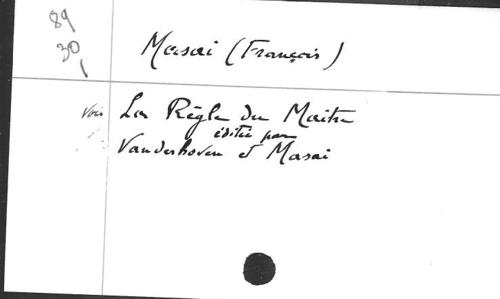 89
30
1
Masai (François)
Voir La Règle du Maitre
éditée par
Vanderhoven et Masai